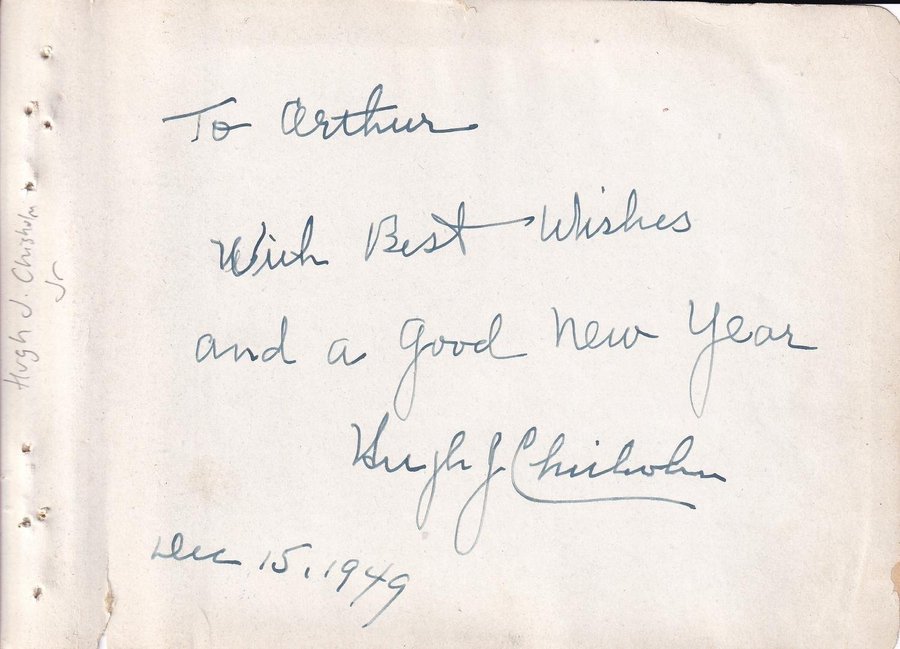 To Arthur
With Best Wishes
and a Good New Year
Hugh J Chisholm
Dec 15, 1949
Hugh J. Chisholm
Jr